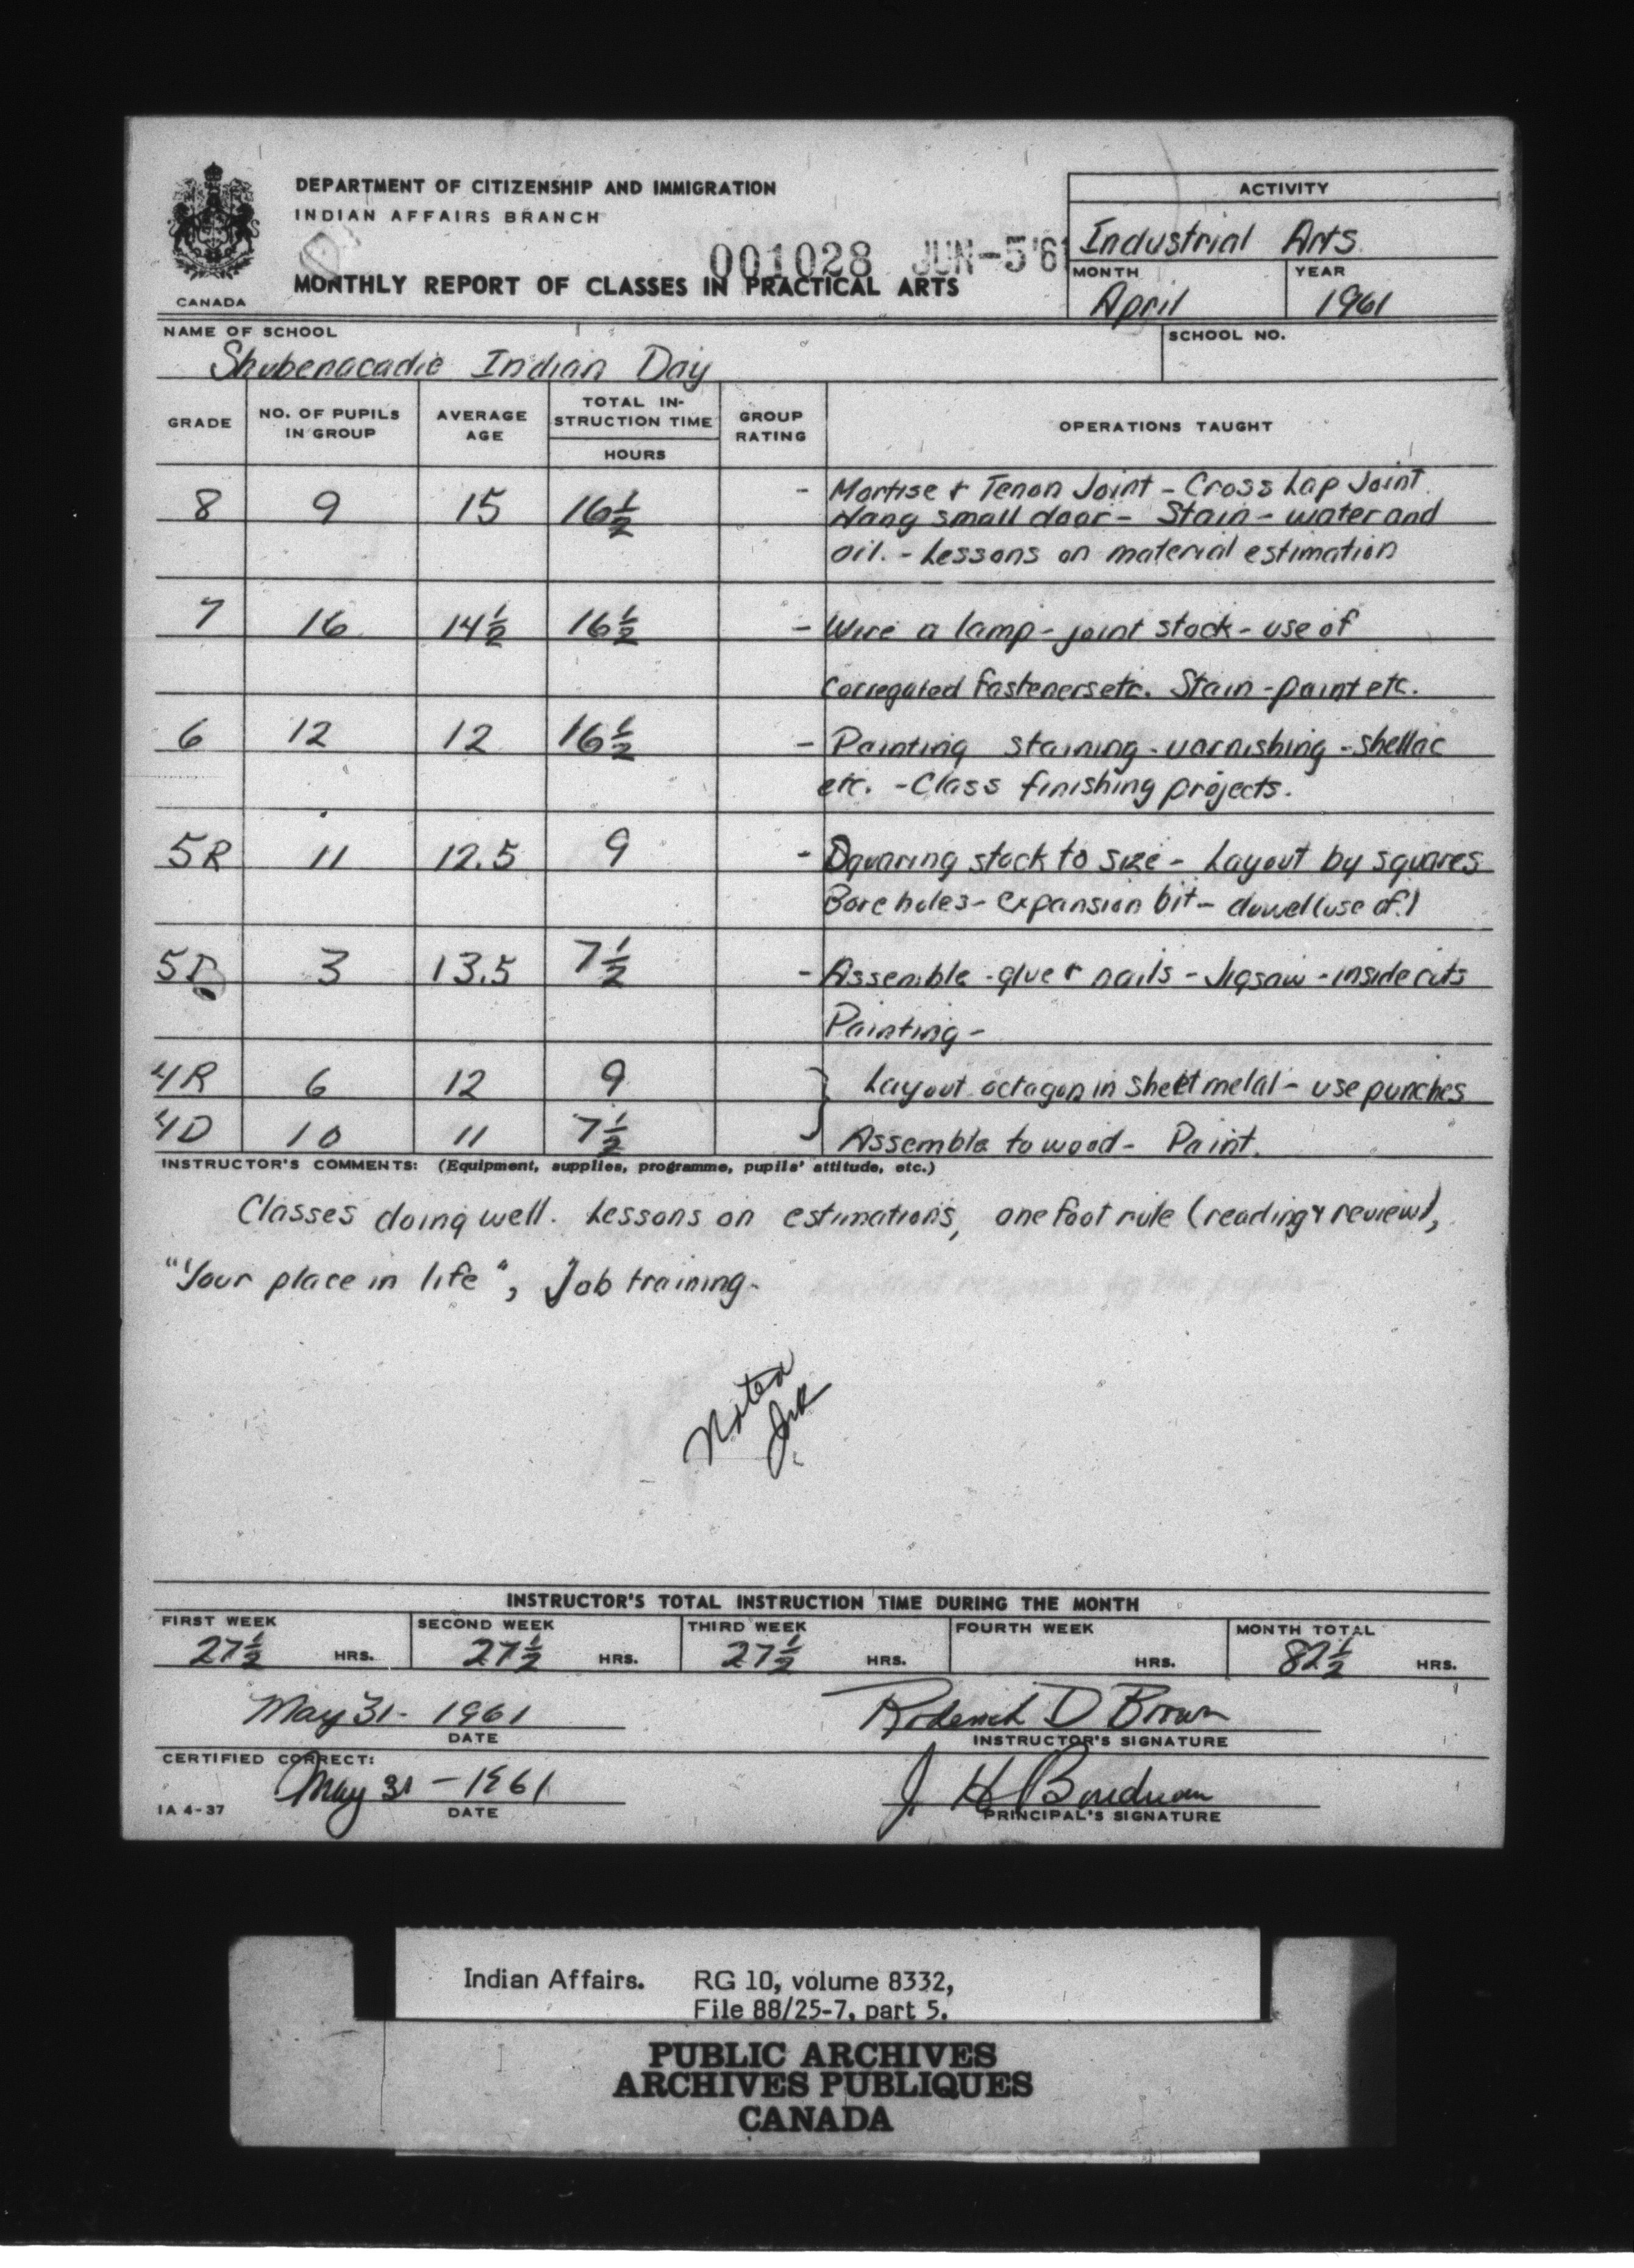 DEPARTMENT OF CITIZENSHIP AND IMMIGRATION
INDIAN AFFAIRS BRANCH
001028 JUN-5'61
MONTHLY REPORT OF CLASSES IN PRACTICAL ARTS
CANADA
ACTIVITY
Industrial Arts
MONTH YEAR
April 1961
NAME OF SCHOOL SCHOOL NO.
Shubenacadie Indian Day
GRADE NO. OF PUPILS IN GROUP AVERAGE AGE TOTAL IN-STRUCTION TIME HOURS GROUP RATING OPERATIONS TAUGHT
8 9 15 16 1/2 - Mortise + Tenon Joint - Cross Lap Joint
Hang small door - Stain - water and
oil. - Lessons on material estimation
7 16 14 1/2 16 1/2 - Wire a lamp - joint stock - use of
Corregated fasteners etc. Stain - paint etc.
6 12 12 16 1/2 - Painting staining - varnishing - shellac
etc. - Class finishing projects.
5R 11 12.5 9 - Squaring stock to size - Layout by squares
Bore holes - expansion bit - dowel (use of)
5D 3 13.5 7 1/2 - Assemble - glue + nails - Jigsaw - inside cuts
Painting -
4R 6 12 9 } Layout octagon in sheet metal - use punches
4D 10 11 7 1/2 Assemble to wood - Paint.
INSTRUCTOR'S COMMENTS: (Equipment, supplies, programme, pupils' attitude, etc.)
Classes doing well. Lessons on estimations, one foot rule (reading + review),
"Your place in life", Job training.
Noted
INSTRUCTOR'S TOTAL INSTRUCTION TIME DURING THE MONTH
FIRST WEEK SECOND WEEK THIRD WEEK FOURTH WEEK MONTH TOTAL
27 1/2 HRS. 27 1/2 HRS. 27 1/2 HRS. HRS. 82 1/2 HRS.
May 31 - 1961 Roderick D Brown
DATE INSTRUCTOR'S SIGNATURE
CERTIFIED CORRECT:
May 31 - 1961 J. H.
IA 4-37 DATE PRINCIPAL'S SIGNATURE
Indian Affairs. RG 10, volume 8332,
File 88/25-7, part 5.
PUBLIC ARCHIVES
ARCHIVES PUBLIQUES
CANADA